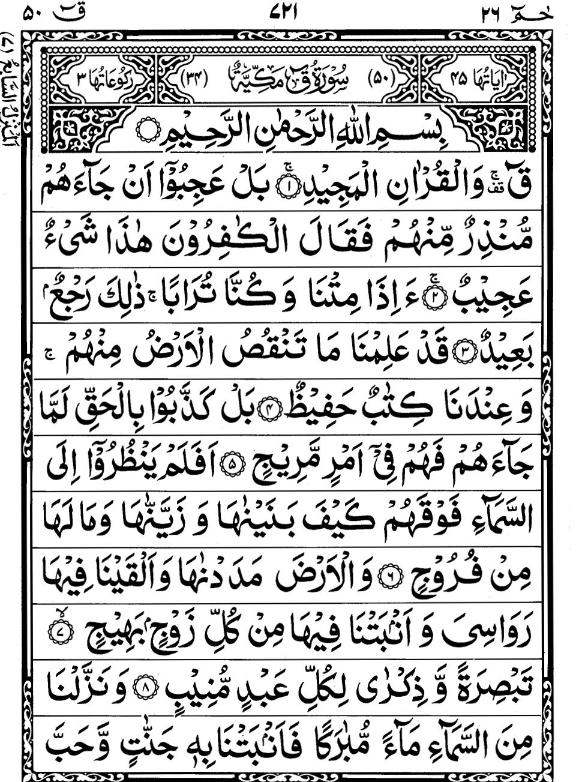 حٰمٓ ٢٦
٧٢١
قٓ ٥٠
اٰيَاتُهَا ٤٥
(٥٠) سُوْرَةُ قٓ مَكِّيَّةٌ (٣٤)
رُكُوْعَاتُهَا ٣
اَلْمَنْزِلُ السَّابِعُ (٧)
بِسْمِ اللّٰهِ الرَّحْمٰنِ الرَّحِيْمِ
قٓ ۚ وَالْقُرْاٰنِ الْمَجِيْدِ ۚ﴿١﴾ بَلْ عَجِبُوْٓا اَنْ جَآءَهُمْ
مُّنْذِرٌ مِّنْهُمْ فَقَالَ الْكٰفِرُوْنَ هٰذَا شَيْءٌ
عَجِيْبٌ ۚ﴿٢﴾ ءَاِذَا مِتْنَا وَكُنَّا تُرَابًا ۚ ذٰلِكَ رَجْعٌۢ
بَعِيْدٌ ﴿٣﴾ قَدْ عَلِمْنَا مَا تَنْقُصُ الْاَرْضُ مِنْهُمْ ۚ
وَعِنْدَنَا كِتٰبٌ حَفِيْظٌ ﴿٤﴾ بَلْ كَذَّبُوْا بِالْحَقِّ لَمَّا
جَآءَهُمْ فَهُمْ فِيْٓ اَمْرٍ مَّرِيْجٍ ﴿٥﴾ اَفَلَمْ يَنْظُرُوْٓا اِلَى
السَّمَآءِ فَوْقَهُمْ كَيْفَ بَنَيْنٰهَا وَزَيَّنّٰهَا وَمَا لَهَا
مِنْ فُرُوْجٍ ﴿٦﴾ وَالْاَرْضَ مَدَدْنٰهَا وَاَلْقَيْنَا فِيْهَا
رَوَاسِيَ وَاَنْۢبَتْنَا فِيْهَا مِنْ كُلِّ زَوْجٍۭ بَهِيْجٍ ۙ﴿٧﴾
تَبْصِرَةً وَّذِكْرٰى لِكُلِّ عَبْدٍ مُّنِيْبٍ ﴿٨﴾ وَنَزَّلْنَا
مِنَ السَّمَآءِ مَآءً مُّبٰرَكًا فَاَنْۢبَتْنَا بِهٖ جَنّٰتٍ وَّحَبَّ